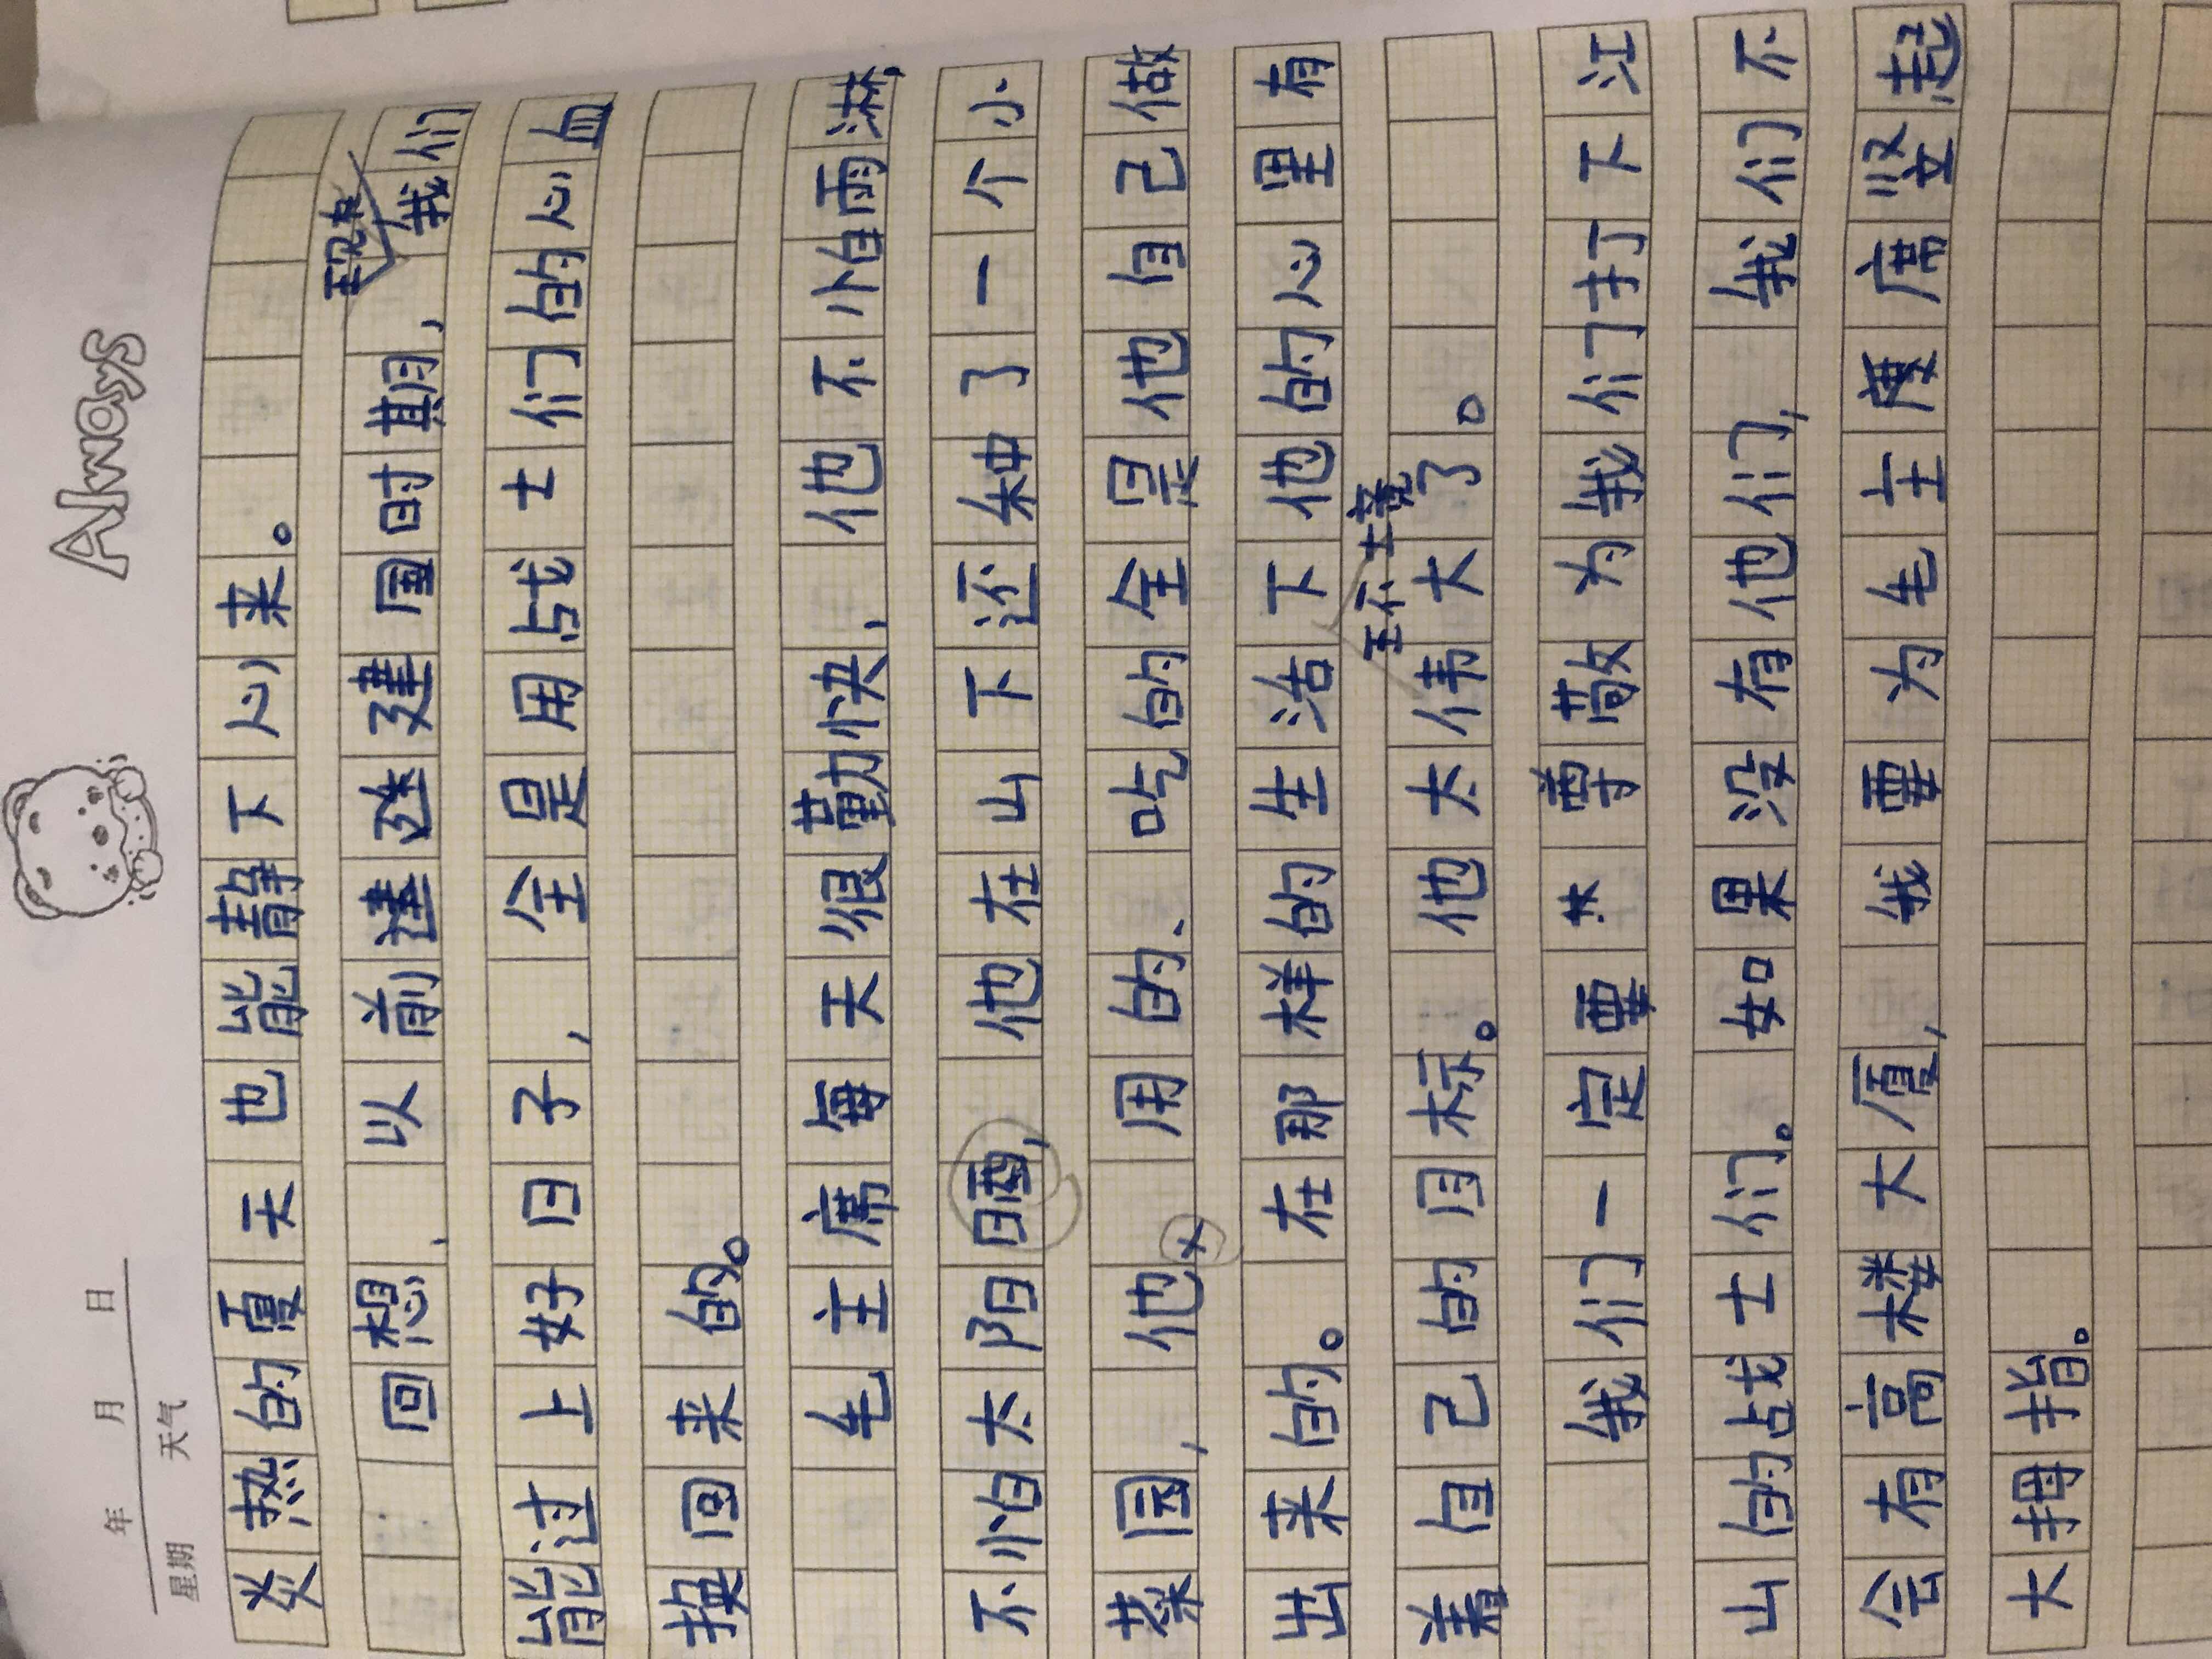 年 月 日
星期 天气
Always
炎热的夏天也能静下心来。
现在
回想,以前建国时期,我们
能过上好日子,全是用战士们的心血
换回来的。
毛主席每天很勤快,他不怕雨淋,
不怕太阳晒,他在山下还种了一个小
菜园,他用的、吃的全是他自己做
出来的。在那样的生活下他的心里有
着自己的目标。他太伟大了。
我们一定要尊敬为我们打下江
山的战士们。如果没有他们,我们不
会有高楼大厦,我要为毛主席竖起
大拇指。